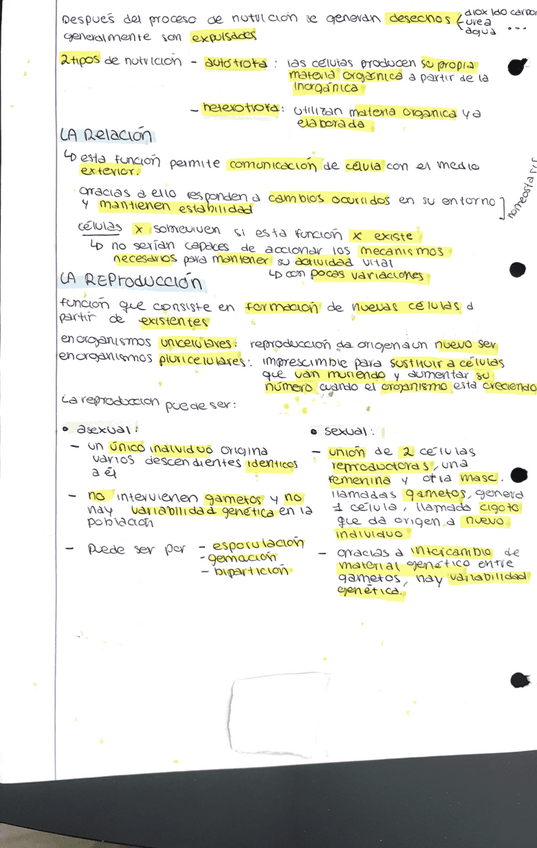 Después del proceso de nutrición se generan desechos { dióxido carbo
urea
agua ...
generalmente son expulsados
2 tipos de nutrición - autótrofa : las células producen su propia
materia orgánica a partir de la
inorgánica
- heterótrofa : utilizan materia orgánica ya
elaborada
LA Relación
↳ esta función permite comunicación de célula con el medio
exterior.
gracias a ello responden a cambios ocurridos en su entorno
y mantienen estabilidad
células x sobreviven si esta función x existe
↳ no serían capaces de accionar los mecanismos
necesarios para mantener su actividad vital
↳ con pocas variaciones
LA REProducción
función que consiste en formación de nuevas células a
partir de existentes
en organismos unicelulares: reproducción da origen a un nuevo ser
en organismos pluricelulares: imprescimble para sustituir a células
que van muriendo y aumentar su
número cuando el organismo está creciendo
La reproducción puede ser:
• asexual:
- un único individuo origina
varios descendientes idénticos
a él
- no intervienen gametos y no
hay variabilidad genética en la
población
- Puede ser por - esporulación
- gemación
- bipartición
• sexual:
- unión de 2 células
reproductoras, una
femenina y otra masc.
llamadas gametos, genera
1 célula, llamada cigoto
que da origen a nuevo
individuo
- gracias a intercambio de
material genético entre
gametos, hay variabilidad
genética.